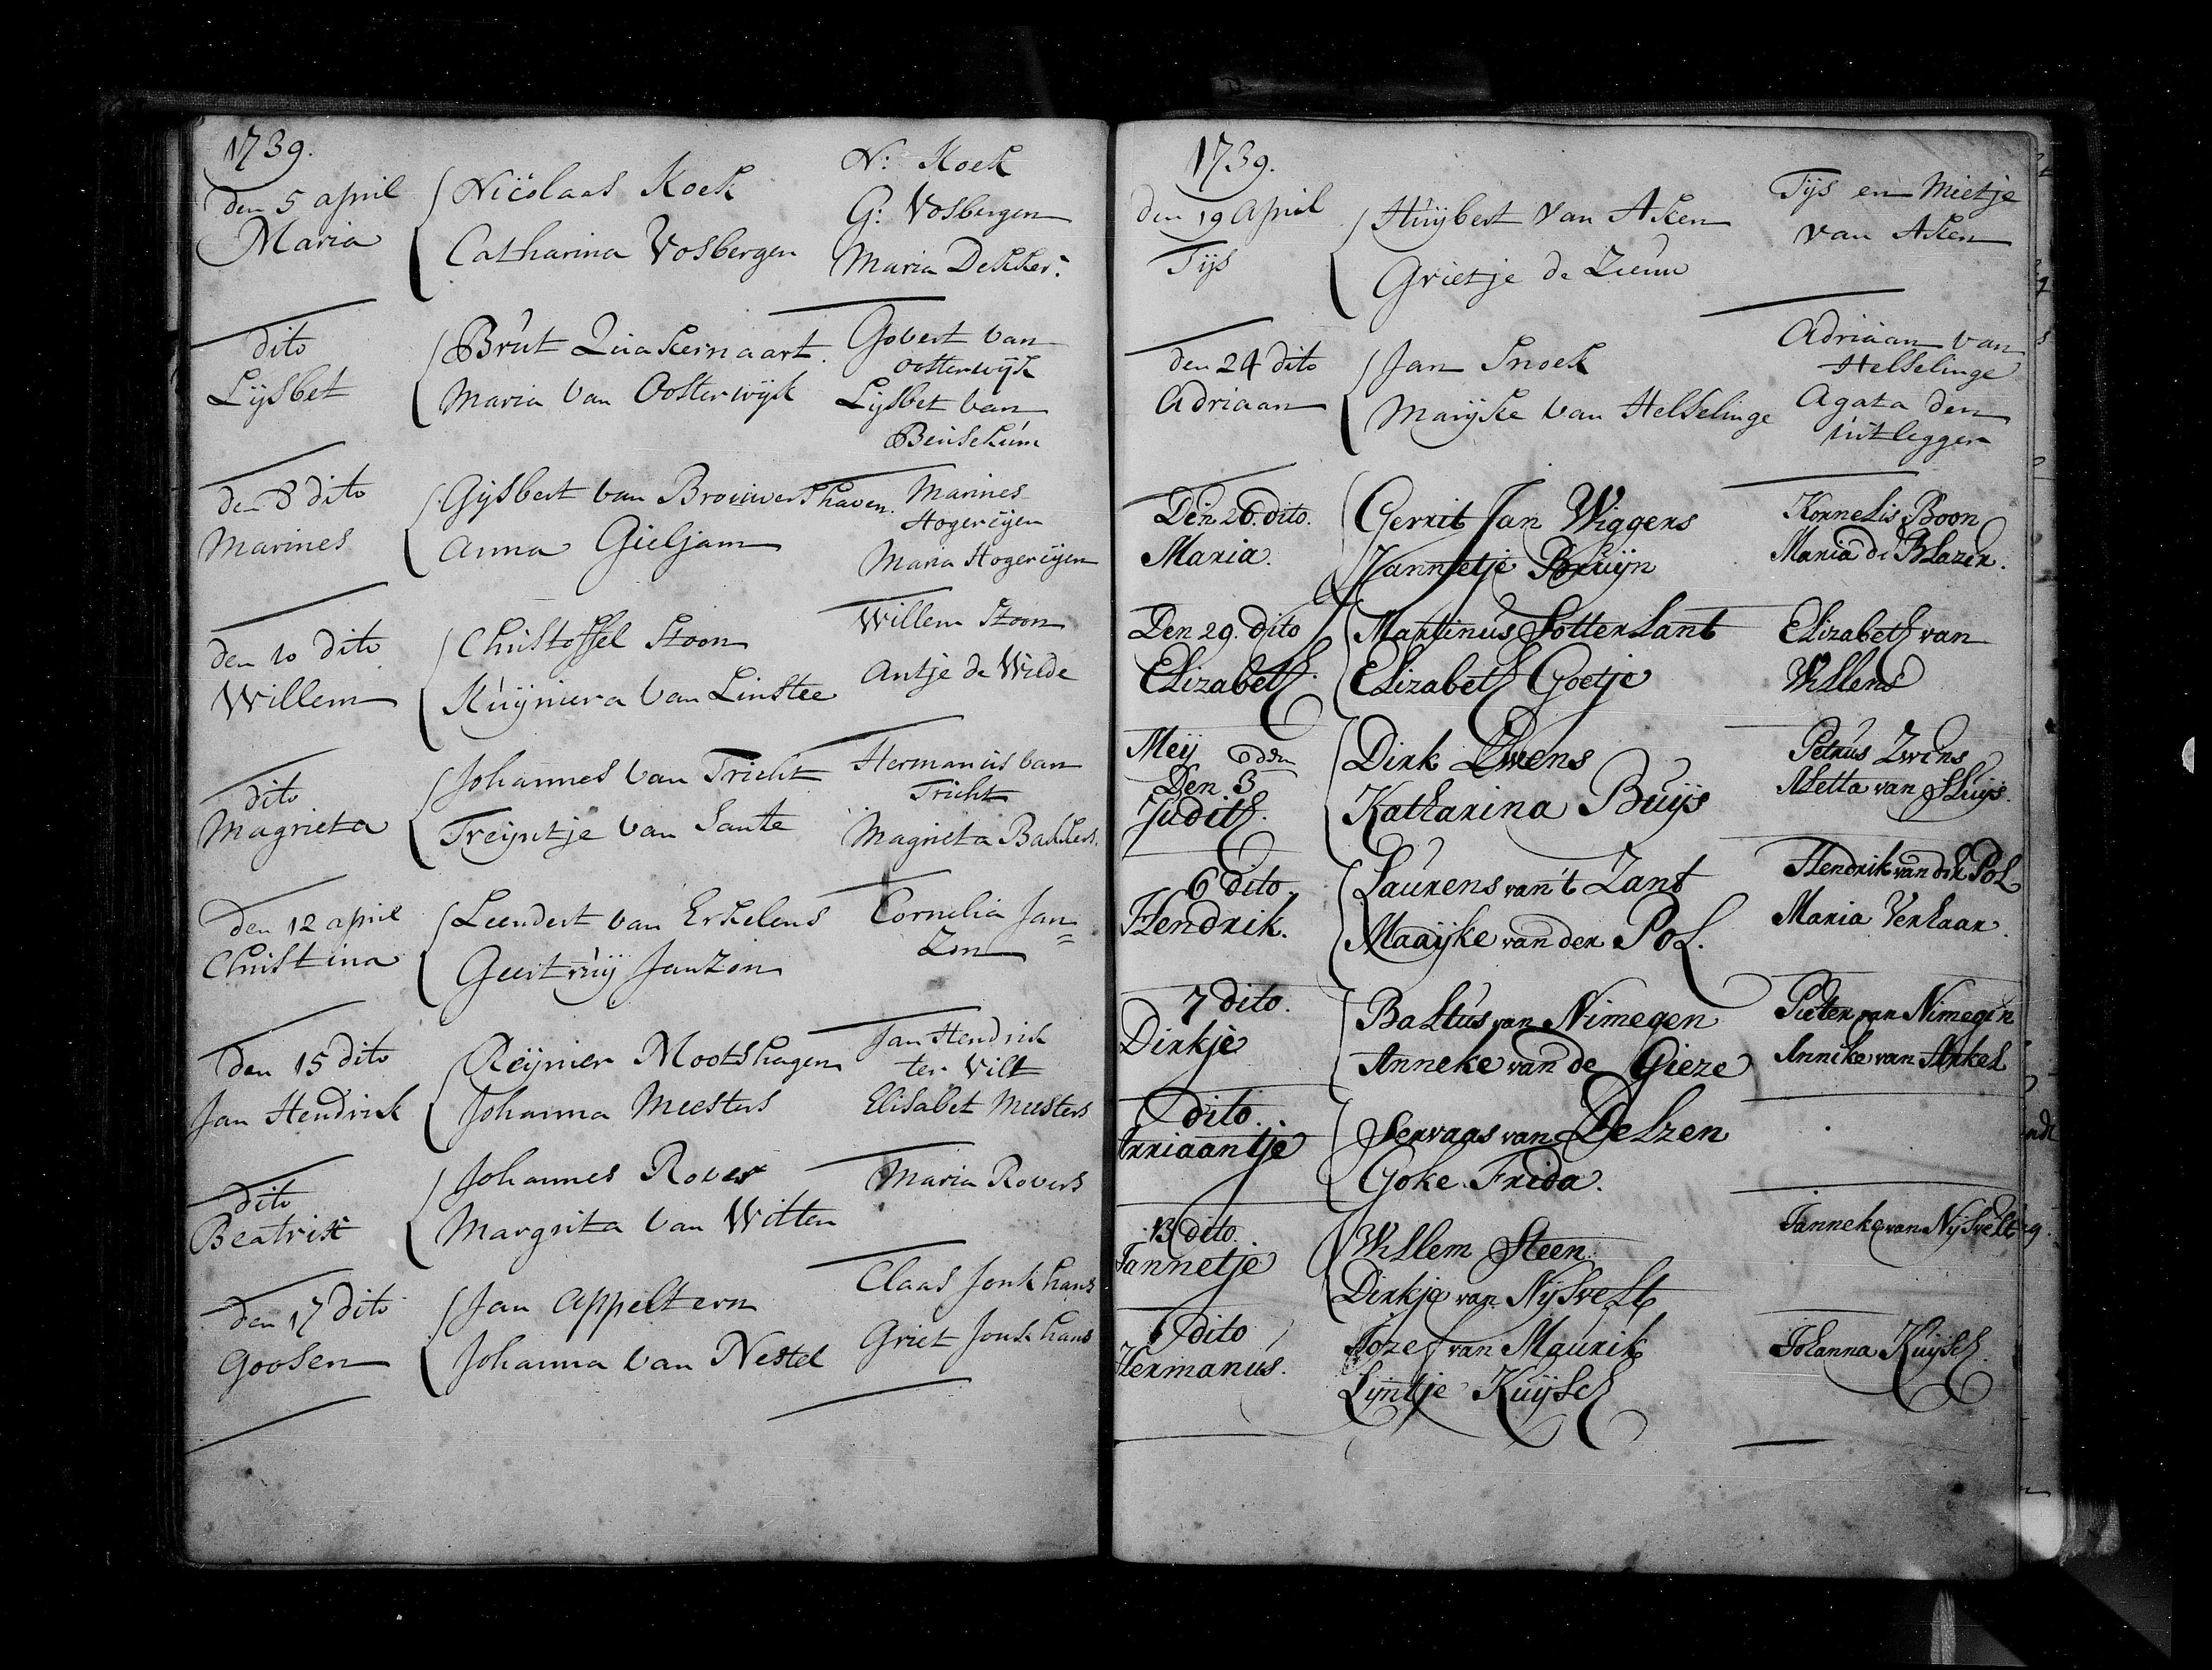 1739.
den 5 april
Maria
Nicolaas Koek
Catharina Vosbergen
N: Koek
G: Vosbergen
Maria Dekker.
dito
Lysbet
Brut Quakernaart.
Maria Van Oosterwyk
Gobert van
oosterwyk
Lysbet van
Beusekum
den 8 dito
Marines
Gysbert van Brouwershaven.
Anna Gieljam
Marines
Hogereyen
Maria Hogereyen
den 10 dito
Willem
Christoffel Stoon
Kuyniera Van Linstee
Willem Stoon
Antje de Wilde
dito
Magrieta
Johannes Van Tricht
Treyntje Van Sante
Hermanus van
Tricht
Magrieta Bakkers.
den 12 april
Christina
Leendert van Erkelens
Geertruy Janzon
Cornelia Jan=
Zon
den 15 dito
Jan Hendrik
Reynier Mootshagen
Johanna Meesters
Jan Hendrik
ter Vilt
Elisabet Meesters
dito
Beatrix
Johannes Rover
Margrita Van Witten
Maria Rovers
den 17 dito
Goosen
Jan Appeltern
Johanna Van Nestel
Claas Jonkhans
Griet Jonkhans
1739.
den 19 April
Tys
Huybert Van Aken
Grietje de Zeeuw
Tys en Mietje
van Aken
den 24 dito
Adriaan
Jan Snoek
Maryke Van Helselinge
Adriaan van
Helselinge
Agata den
uitlegger
Den 26. dito.
Maria.
Gerrit Jan Wiggers
Jannetje Bruyn
Kornelis Boon
Maria de Blazer.
Den 29. dito
Elizabeth.
Martinus Sotterlant
Elizabeth Goetje
Elizabeth van
Willens
Mey
Den 3
Judith.
Dirk Zwens
Katharina Buys
Petrus Zwens
Aletta van Sluys.
6 dito
Hendrik.
Laurens van't Zant
Maayke van der Pol.
Hendrik van der Pol
Maria Verhaar.
7 dito.
Dirkje
Baltus van Nimegen
Anneke van de Gieze
Pieter van Nimegen
Anneke van Arkel
dito.
Arriaantje
Servaas van Delzen
Goke Frida.
13 dito.
Jannetje
Willem Steen
Dirkje van Nysvelt
Janneke van Nysvelt
dito
Hermanus.
Jozef van Maurik
Lyntje Kuysch
Johanna Kuysch.